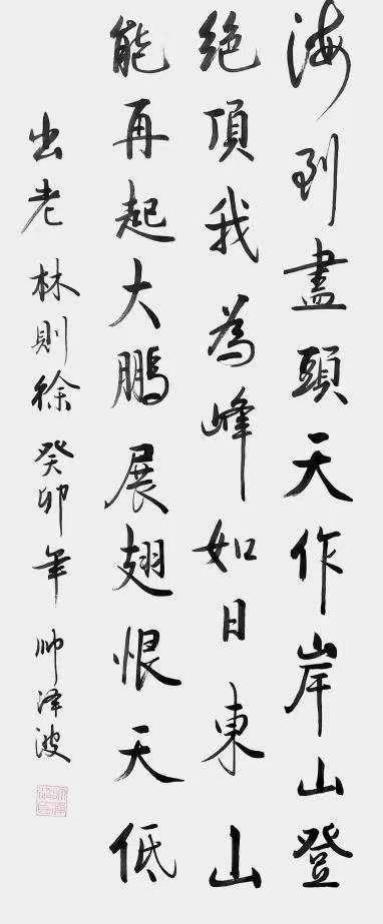 海到盡頭天作岸山登
絕頂我為峰如日東山
能再起大鵬展翅恨天低
出老 林則徐 癸卯年 帅泽波